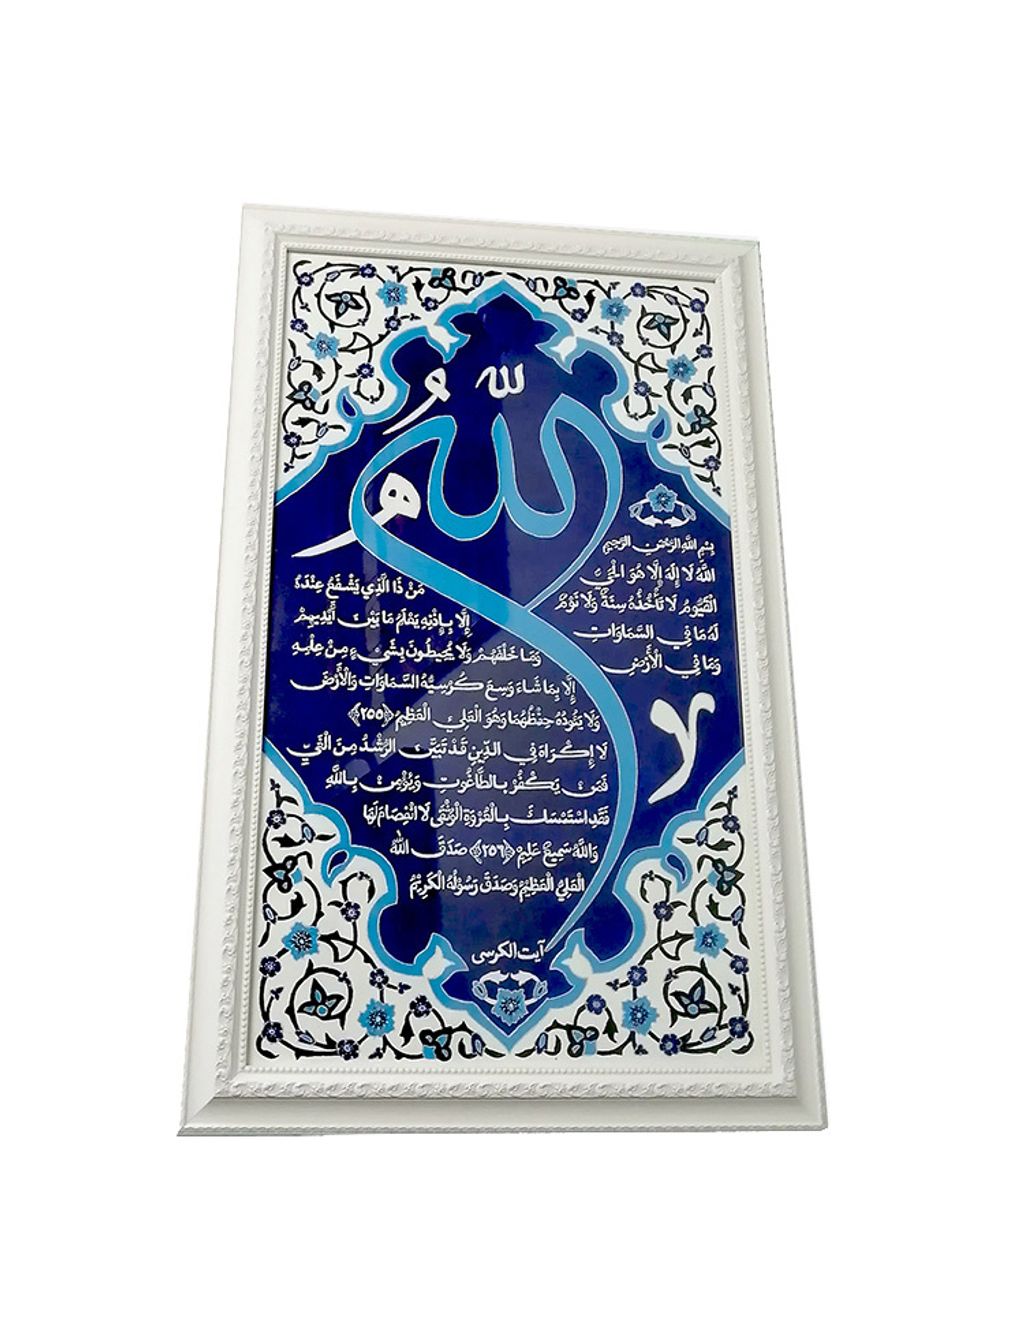 لله
الله
هُو
بِسْمِ اللَّهِ الرَّحْمَنِ الرَّحِيمِ
اللَّهُ لَا إِلَهَ إِلَّا هُوَ الْحَيُّ
الْقَيُّومُ لَا تَأْخُذُهُ سِنَةٌ وَلَا نَوْمٌ
لَهُ مَا فِي السَّمَاوَاتِ
وَمَا فِي الْأَرْضِ
مَنْ ذَا الَّذِي يَشْفَعُ عِنْدَهُ
إِلَّا بِإِذْنِهِ يَعْلَمُ مَا بَيْنَ أَيْدِيهِمْ
وَمَا خَلْفَهُمْ وَلَا يُحِيطُونَ بِشَيْءٍ مِنْ عِلْمِهِ
إِلَّا بِمَا شَاءَ وَسِعَ كُرْسِيُّهُ السَّمَاوَاتِ وَالْأَرْضَ
وَلَا يَئُودُهُ حِفْظُهُمَا وَهُوَ الْعَلِيُّ الْعَظِيمُ ﴿٢٥٥﴾
لَا إِكْرَاهَ فِي الدِّينِ قَدْ تَبَيَّنَ الرُّشْدُ مِنَ الْغَيِّ
فَمَنْ يَكْفُرْ بِالطَّاغُوتِ وَيُؤْمِنْ بِاللَّهِ
فَقَدِ اسْتَمْسَكَ بِالْعُرْوَةِ الْوُثْقَى لَا انْفِصَامَ لَهَا
وَاللَّهُ سَمِيعٌ عَلِيمٌ ﴿٢٥٦﴾ صَدَقَ اللهُ
الْعَلِيُّ الْعَظِيمُ وَصَدَقَ رَسُولُهُ الْكَرِيمُ
لا
آیت الکرسی